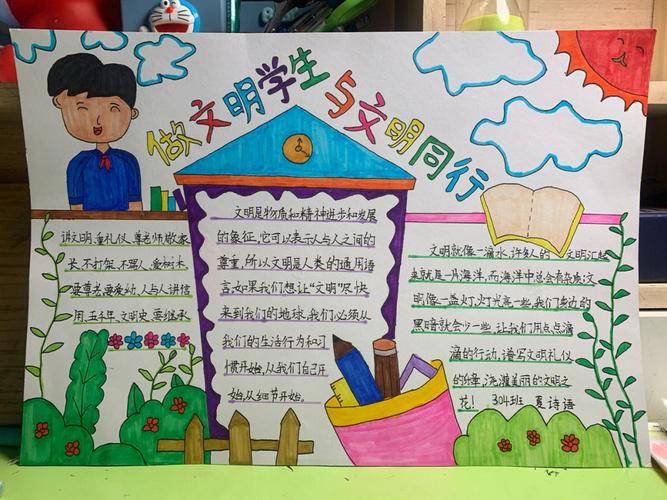 做文明学生与文明同行
讲文明,重礼仪,尊老师,敬家
长,不打架,不骂人,爱树木,
要尊老,要爱幼,人与人,讲信
用,五千年,文明史,要继承
文明是物质和精神进步和发展
的象征,它可以表示人与人之间的
尊重,所以文明是人类的通用语
言,如果我们想让“文明”尽快
来到我们的地球,我们必须从
我们的生活行为和习
惯开始,从我们自己开
始,从细节开始。
文明就像一滴水,许多人的文明汇起
来就是一片海洋,而海洋中总会有杂质;文
明像一盏灯,灯光亮一些,我们身边的
黑暗就会少一些,让我们用点点滴
滴的行动,谱写文明礼仪
的华章,浇灌美丽的文明之
花! 304班 夏诗语